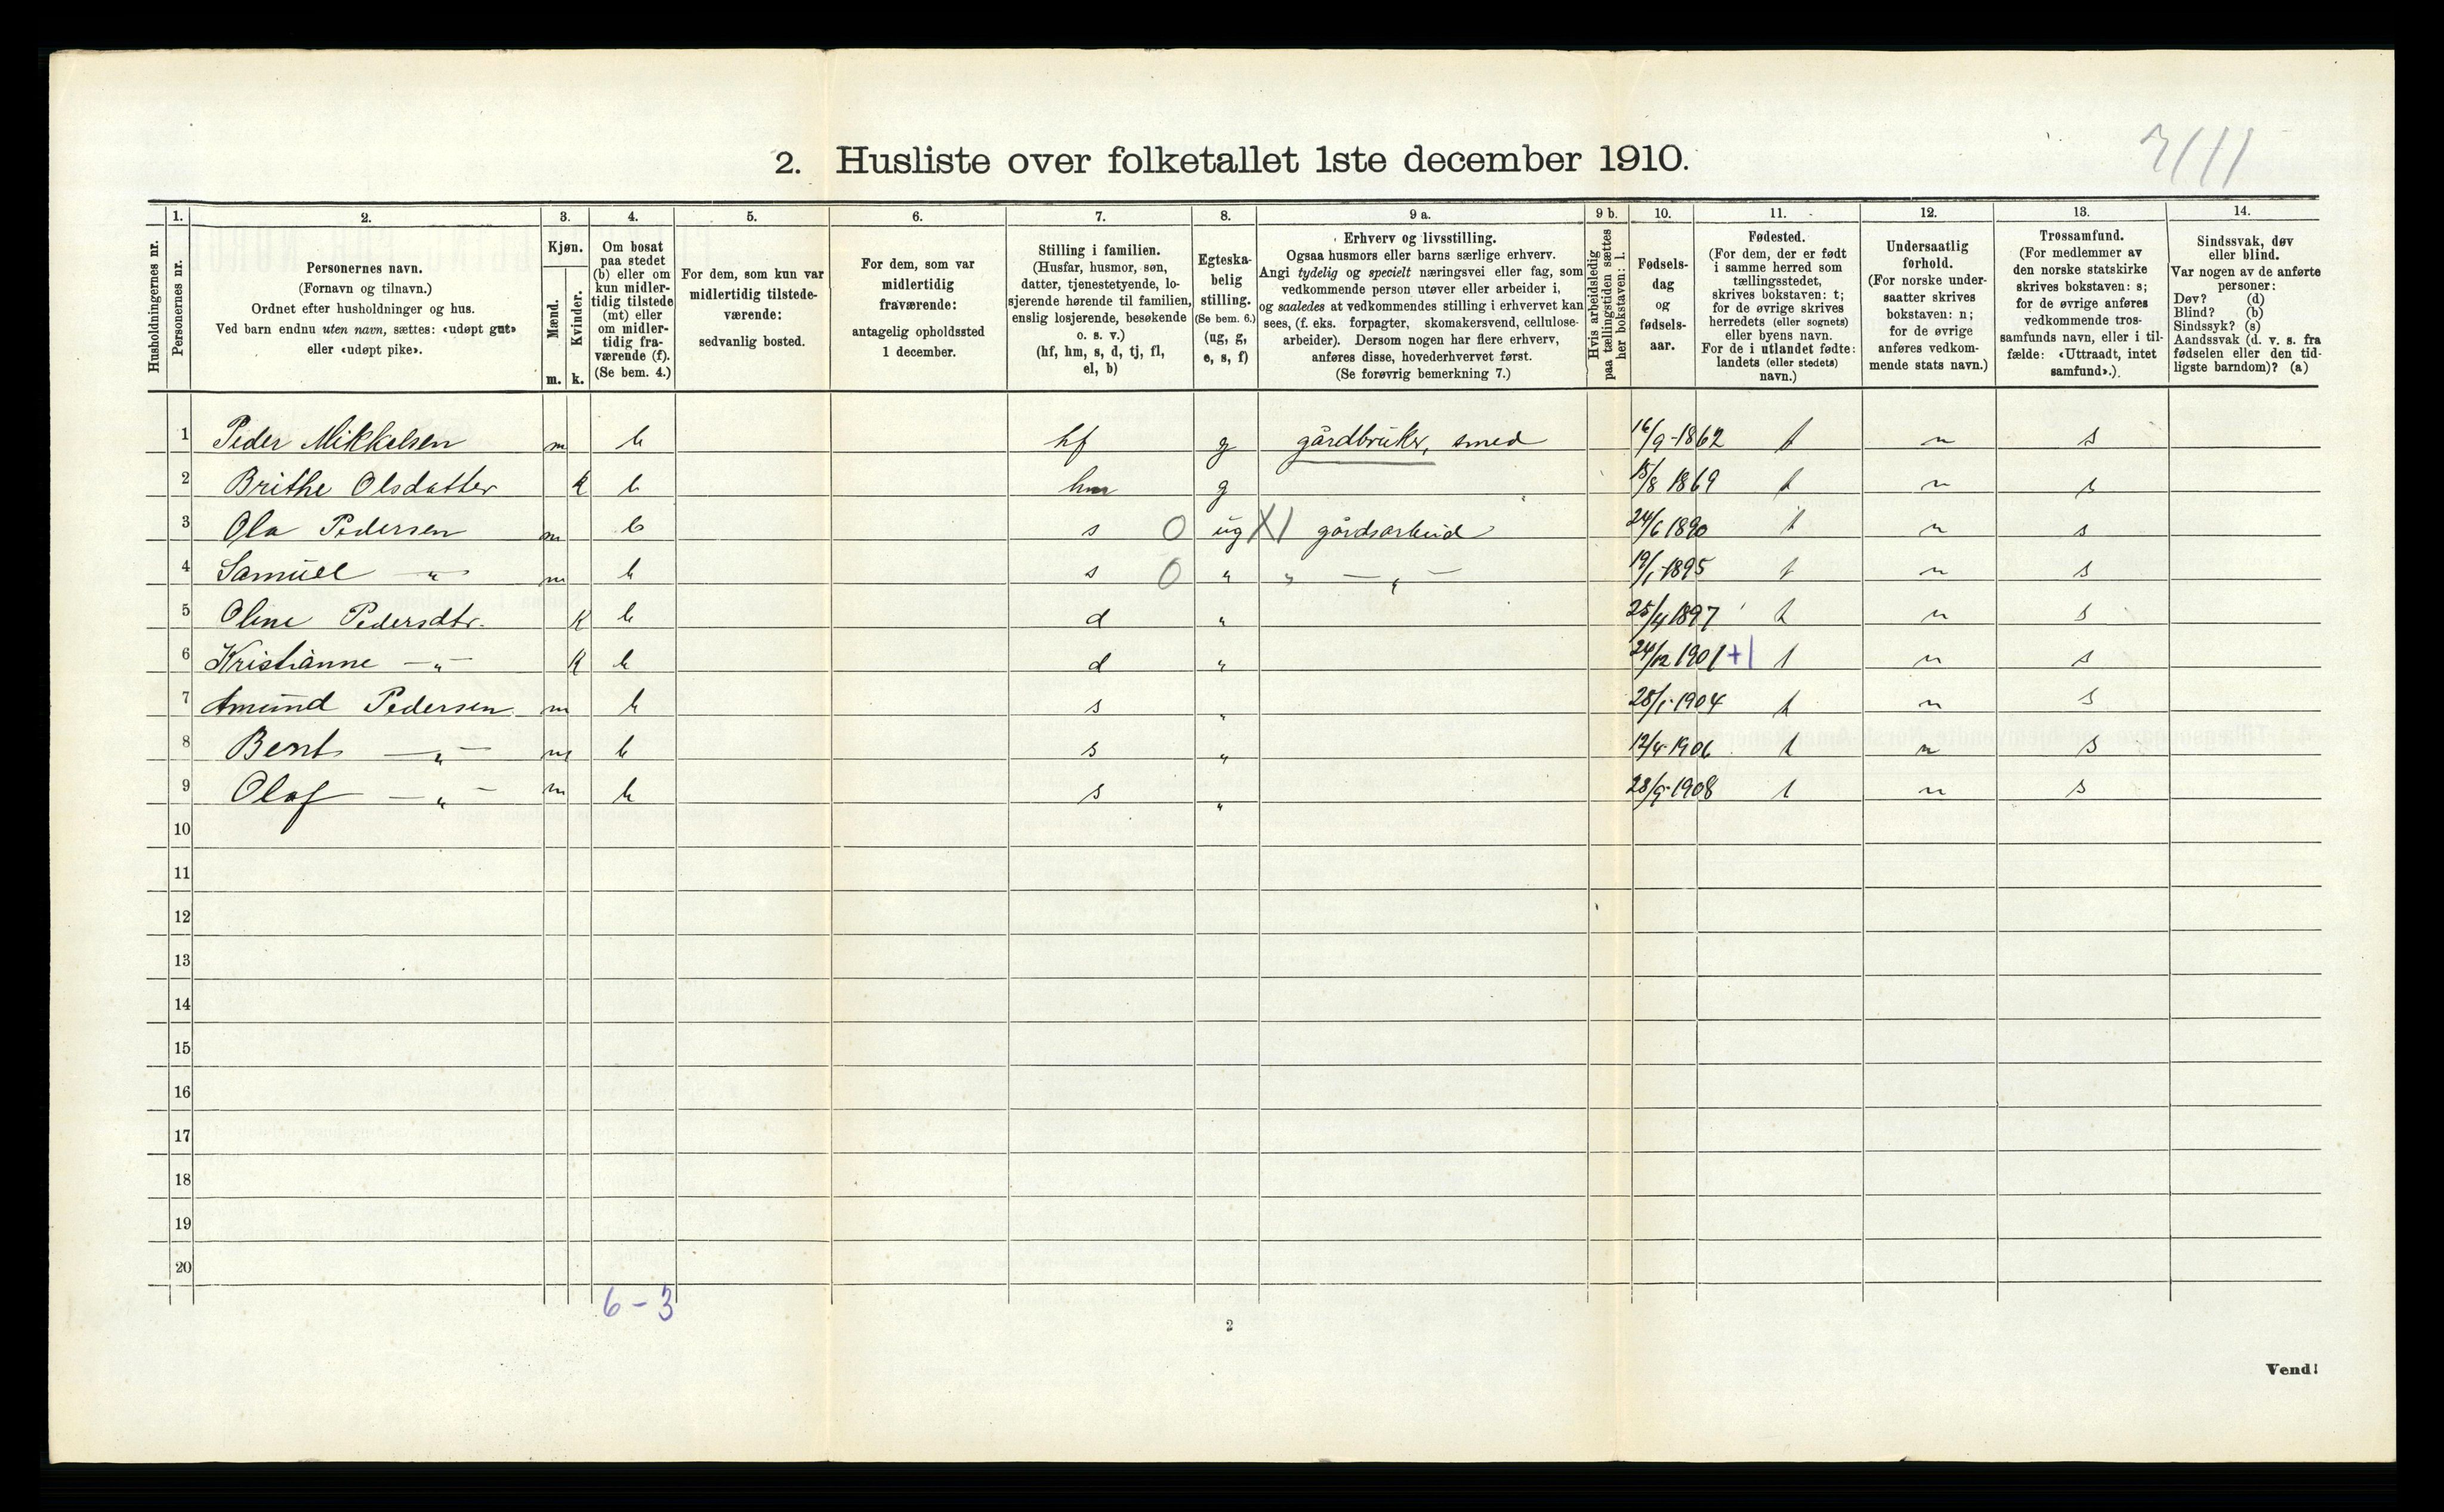 2. Husliste over folketallet 1ste december 1910.
1. 2. 3. 4. 5. 6. 7. 8. 9 a. 9 b. 10. 11. 12. 13. 14.
Husholdningernes nr.
Personernes nr.
Personernes navn.
(Fornavn og tilnavn.)
Ordnet efter husholdninger og hus.
Ved barn endnu uten navn, sættes: «udøpt gut»
eller «udøpt pike».
Kjøn.
Mænd.
Kvinder.
m. k.
Om bosat
paa stedet
(b) eller om
kun midler-
tidig tilstede
(mt) eller
om midler-
tidig fra-
værende (f).
(Se bem. 4.)
For dem, som kun var
midlertidig tilstede-
værende:
sedvanlig bosted.
For dem, som var
midlertidig
fraværende:
antagelig opholdssted
1 december.
Stilling i familien.
(Husfar, husmor, søn,
datter, tjenestetyende, lo-
sjerende hørende til familien,
enslig losjerende, besøkende
o. s. v.)
(hf, hm, s, d, tj, fl,
el, b)
Egteska-
belig
stilling.
(Se bem. 6.)
(ug, g,
e, s, f)
Erhverv og livsstilling.
Ogsaa husmors eller barns særlige erhverv.
Angi tydelig og specielt næringsvei eller fag, som
vedkommende person utøver eller arbeider i,
og saaledes at vedkommendes stilling i erhvervet kan
sees, (f. eks. forpagter, skomakersvend, cellulose-
arbeider). Dersom nogen har flere erhverv,
anføres disse, hovederhvervet først.
(Se forøvrig bemerkning 7.)
Hvis arbeidsledig
paa tællingstiden sættes
her bokstaven: l.
Fødsels-
dag
og
fødsels-
aar.
Fødested.
(For dem, der er født
i samme herred som
tællingsstedet,
skrives bokstaven: t;
for de øvrige skrives
herredets (eller sognets)
eller byens navn.
For de i utlandet fødte:
landets (eller stedets)
navn.)
Undersaatlig
forhold.
(For norske under-
saatter skrives
bokstaven: n;
for de øvrige
anføres vedkom-
mende stats navn.)
Trossamfund.
(For medlemmer av
den norske statskirke
skrives bokstaven: s;
for de øvrige anføres
vedkommende tros-
samfunds navn, eller i til-
fælde: «Uttraadt, intet
samfund».)
Sindssvak, døv
eller blind.
Var nogen av de anførte
personer:
Døv? (d)
Blind? (b)
Sindssyk? (s)
Aandssvak (d. v. s. fra
fødselen eller den tid-
ligste barndom)? (a)
1 Peder Mikkelsen m b hf g gårdbruker, smed 16/9-1862 t n s
2 Brithe Olsdatter k b hm g 15/8 1869 t n s
3 Ola Pedersen m b s 0 ug X1 gårdsarbeid 24/6 1890 t n s
4 Samuel —„— m b s 0 „ „ —„— 19/1-1895 t n s
5 Oline Pedersdtr. k b d „ 25/4 1897 t n s
6 Kristianne —„— k b d „ 24/12 1901 +1 t n s
7 Amund Pedersen m b s „ 28/1-1904 t n s
8 Bernt —„— m b s „ 12/4-1906 t n s
9 Olaf —„— m b s „ 28/9-1908 t n s
10
11
12
13
14
15
16
17
18
19
20
6-3
2
Vend!